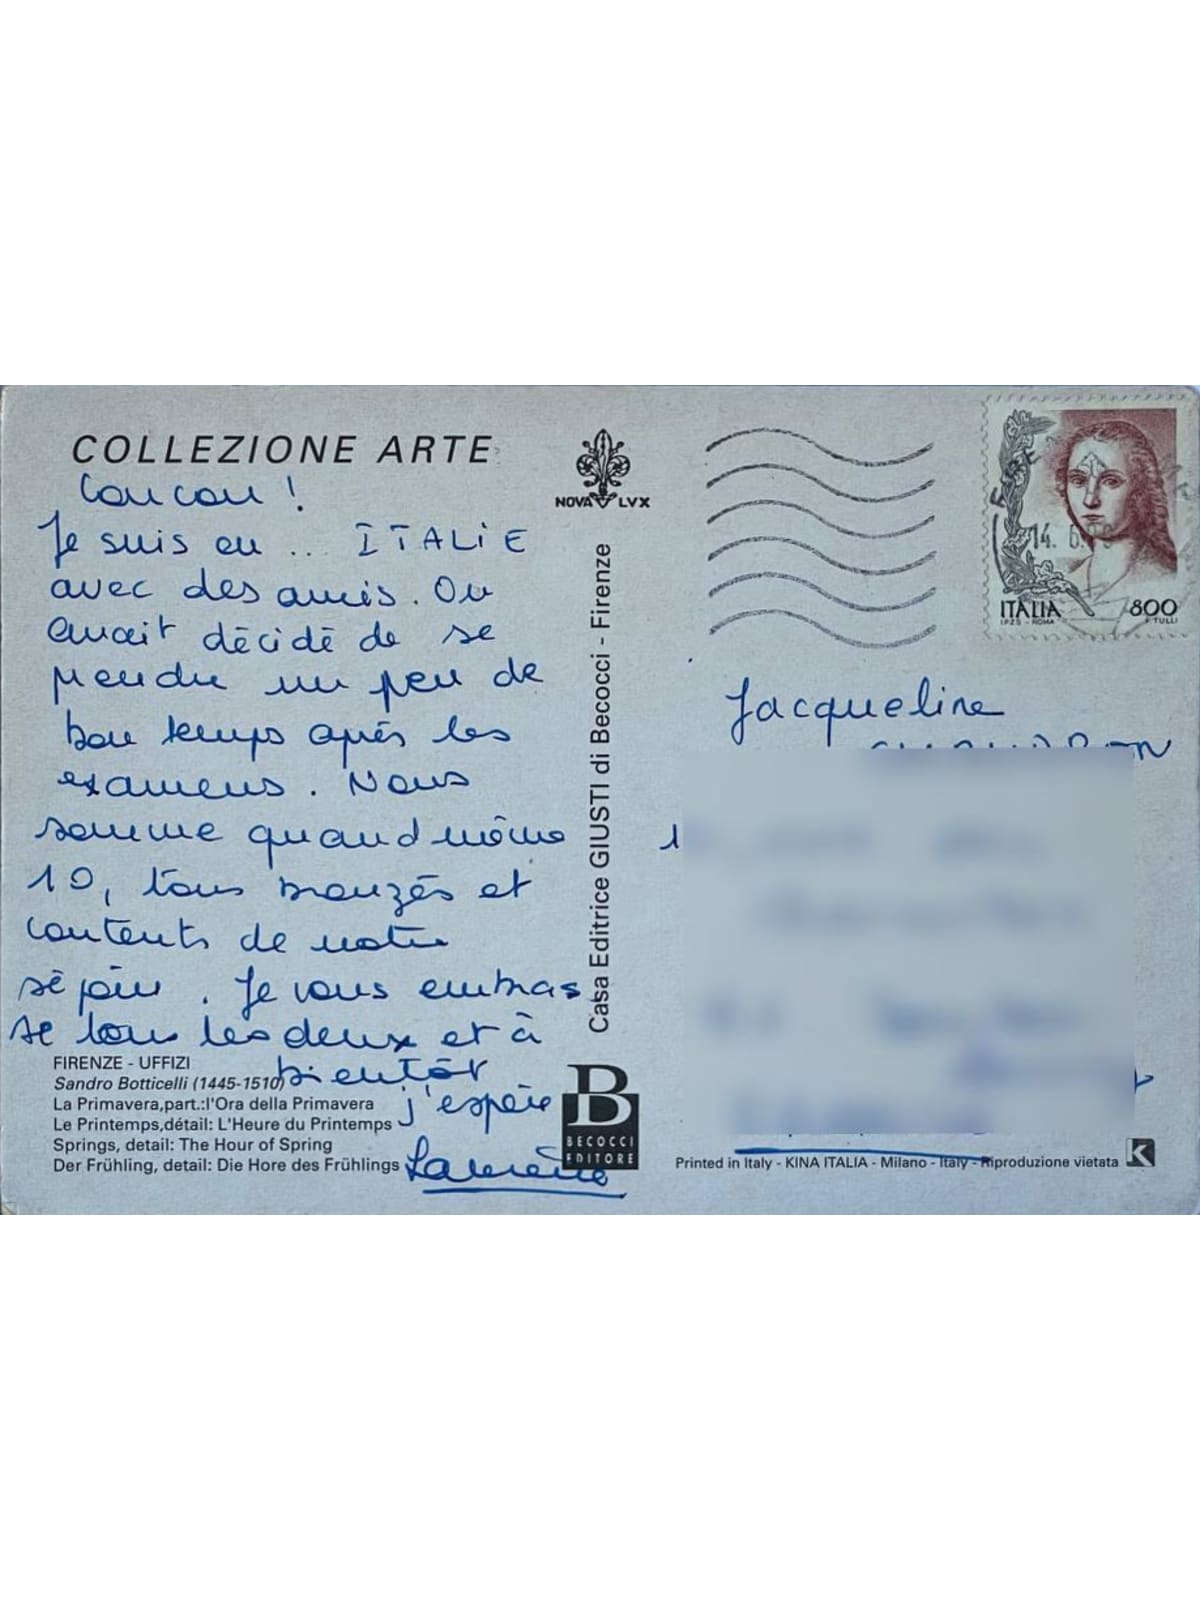 COLLEZIONE ARTE
Coucou !
Je suis en .. ITALIE
avec des amis. On
avait décidé de se
prendre un peu de
bon temps après les
examens. Nous
somme quand même
10, tous bronzés et
contents de notre
séjour. Je vous embras
se tous les deux et à
bientôt
j'espère
FIRENZE - UFFIZI
Sandro Botticelli (1445-1510)
La Primavera,part.:l'Ora della Primavera
Le Printemps,détail: L'Heure du Printemps
Springs, detail: The Hour of Spring
Der Frühling, detail: Die Hore des Frühlings
NOVA LVX
Casa Editrice GIUSTI di Becocci - Firenze
B
BECOCCI
EDITORE
14. 6.
ITALIA 800
I.P.Z.S. - ROMA F. TULLI
Jacqueline
Printed in Italy - KINA ITALIA - Milano - Italy - Riproduzione vietata
K